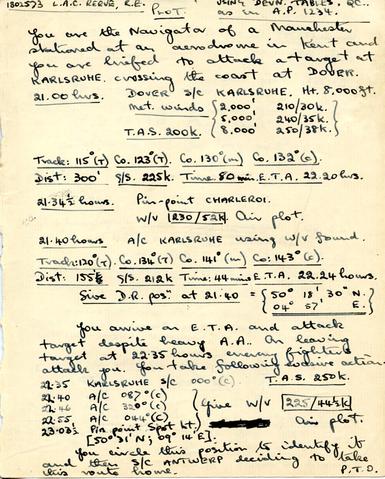 1801573 L.A.C. REEVE, R.E. PLOT. USING DEVN. TABLES, &C..
as in A.P. 1234.
You are the Navigator of a Manchester
stationed at an aerodrome in Kent and
you are briefed to attack a target at
KARLSRUHE, crossing the coast at DOVER.
21.00 hrs. DOVER S/C KARLSRUHE. Ht. 8,000ft.
Met. winds { 2,000' 210/30k.
5,000' 240/35k.
T.A.S. 200k. 8,000' 250/38k. }
Track: 115°(T) Co. 123°(T) Co. 130°(m) Co. 132°(c).
Dist: 300' G/S. 225k. Time: 80 min. E.T.A. 22.20 hrs.
21.34½ hours Pin-point CHARLEROI.
W/V 230/52k. Air plot.
21.40 hours A/C KARLSRUHE using W/V found.
Track: 120°(T). Co. 134°(T) Co. 141°(m) Co: 143°(c).
Dist: 155½ G/S. 212k Time: 44 mins E.T.A. 22.24 hours.
Give D.R. pos. at 21.40 = { 50° 18' 30" N.
04° 57' E. }
You arrive on E.T.A. and attack
target despite heavy A.A.. On leaving
target at 22.35 hours enemy fighters
attack you. You take following evasive action.
22.35 KARLSRUHE S/C 000°(c) T.A.S. 250k.
22.40 A/C 087°(c)
22.46 A/C 320°(c) Give W/V 225/44½k
22.55 A/C 044°(c)
23.03½ Pin point Spot ht. Air plot.
[50° 31' N; 09° 14' E].
You circle this position to identify it
and then S/C ANTWERP deciding to take
this route home. P.T.O.